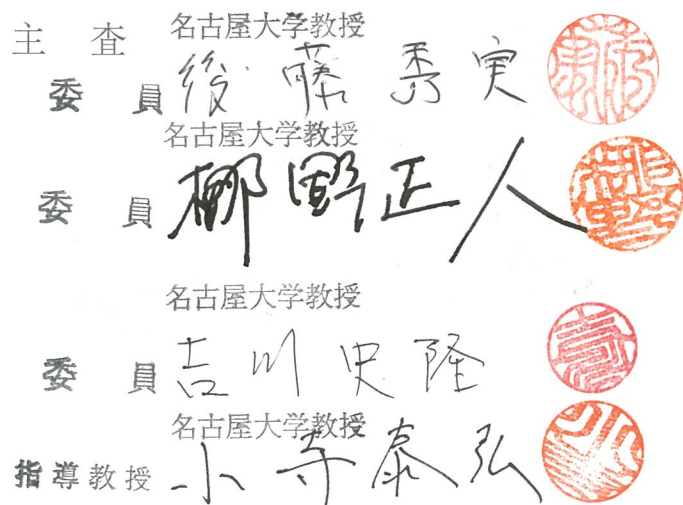 主査
名古屋大学教授
委員 後藤秀実
名古屋大学教授
委員 梛野正人
名古屋大学教授
委員 吉川史隆
名古屋大学教授
指導教授 小寺泰弘